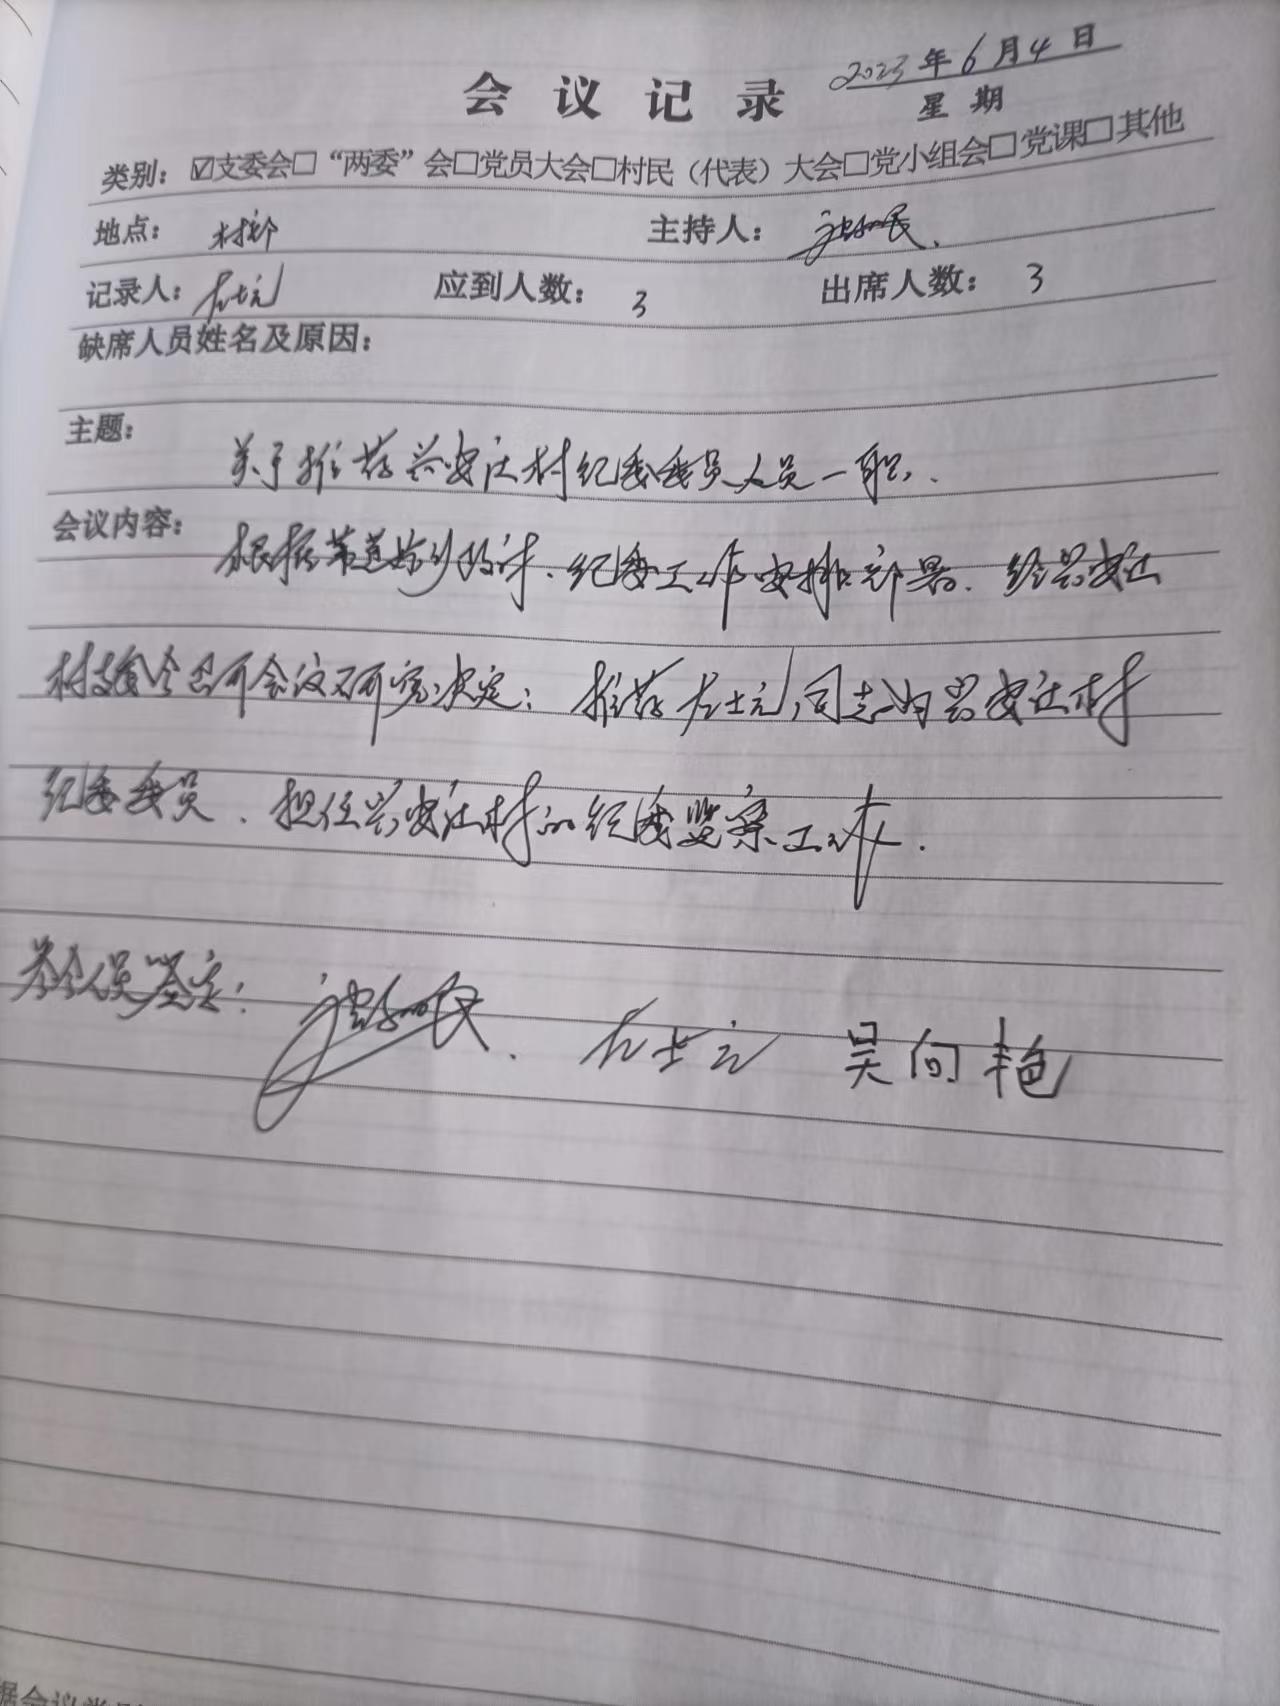 会议记录
2023年6月4日
星期
类别：☑支委会□“两委”会□党员大会□村民（代表）大会□党小组会□党课□其他
地点： 村部 主持人：
记录人：左士元 应到人数：3 出席人数：3
缺席人员姓名及原因：
主题： 关于推荐兴安社村纪委委员人员一职.
会议内容： 根据 纪委工作安排部署. 经兴安社
村支委会召开会议研究决定：推荐左士元同志为兴安社村
纪委委员、担任兴安社村的纪委监察工作.
参会人员签字： 左士元 吴向艳
据会议